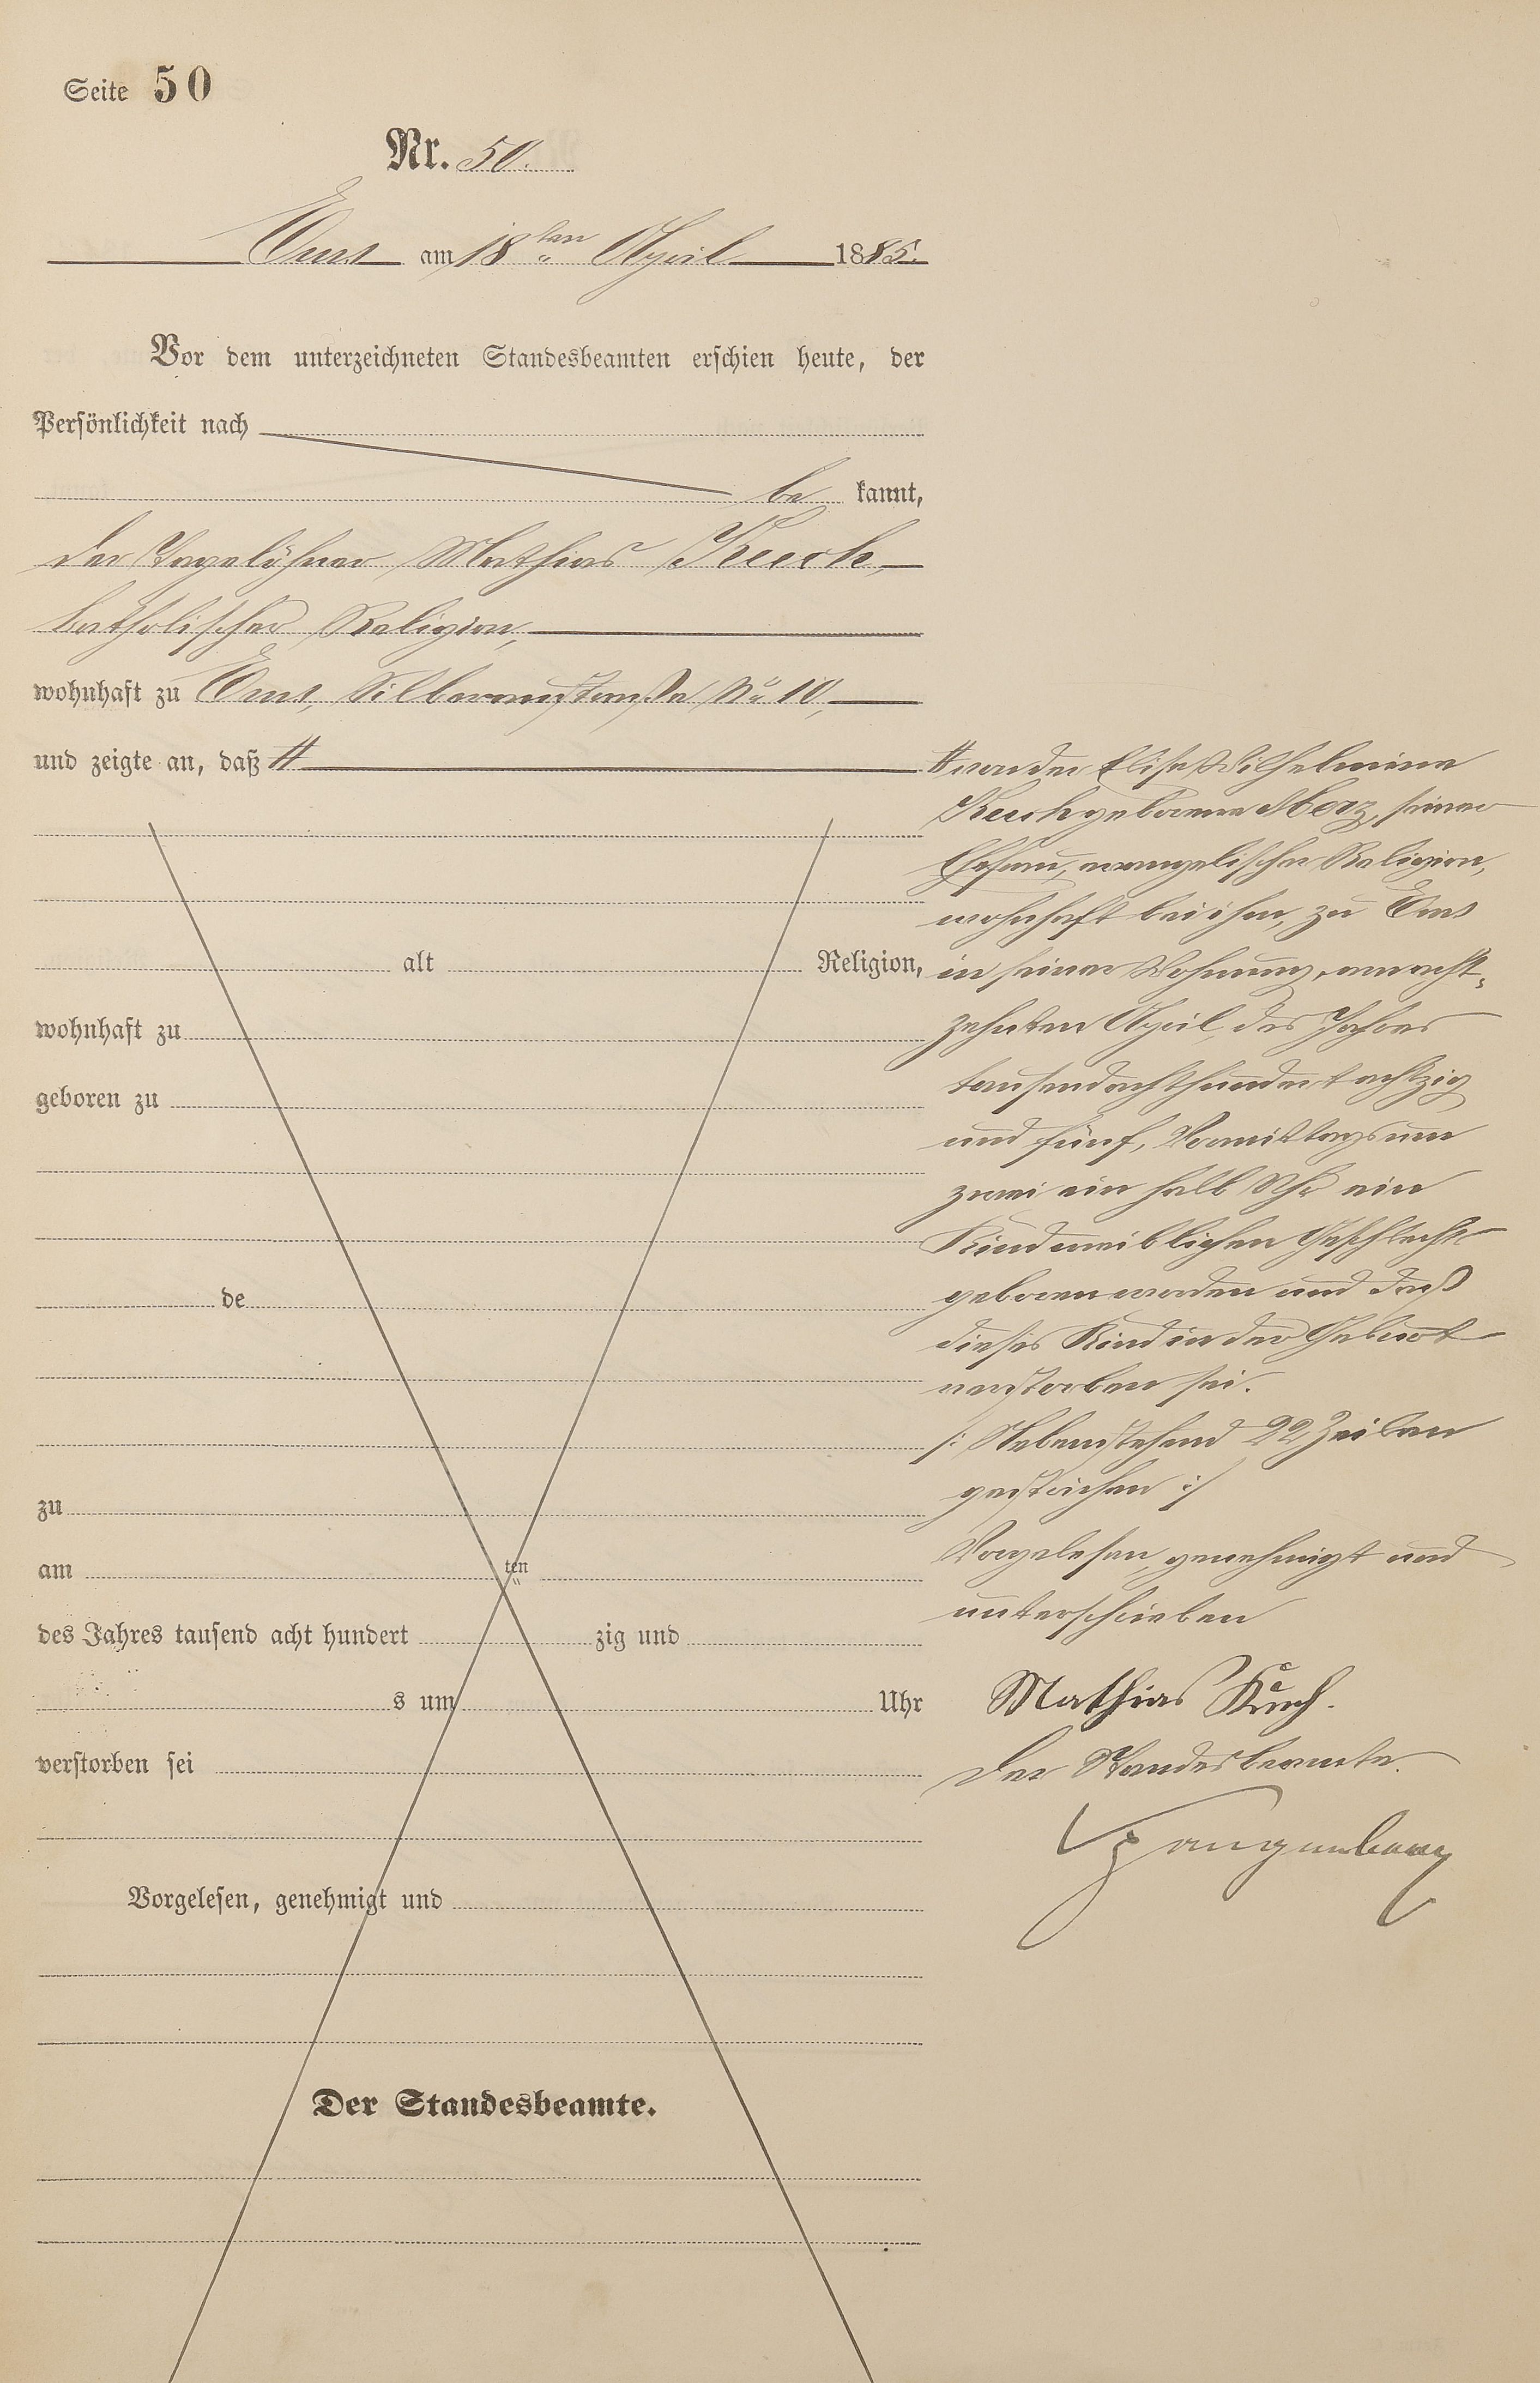 Seite 50
Nr. 50.
Ems am 18ten April 1885.
Vor dem unterzeichneten Standesbeamten erschien heute, der
Persönlichkeit nach
be kannt,
der Tagelöhner Mathias Kuch,
katholischer Religion,
wohnhaft zu Ems, Silberaustraße No 10,
und zeigte an, daß #
alt Religion,
wohnhaft zu
geboren zu
de
zu
am ten
des Jahres tausend acht hundert zig und
s um Uhr
verstorben sei
Vorgelesen, genehmigt und
Der Standesbeamte.
# von der Elise Wilhelmine
Kuch geborene Merz, seiner
Ehefrau, evangelischer Religion,
wohnhaft bei ihm, zu Ems
in seiner Wohnung, am acht-
zehnten April, des Jahres
tausendachthundert achtzig
und fünf, Vormittags um
zwei ein halb Uhr ein
Kind weiblichen Geschlechts
geboren worden und daß
dieses Kind in der Geburt
verstorben sei.
/: Nebenstehend 22 Zeilen
gestrichen :/
Vorgelesen, genehmigt und
unterschrieben
Mathias Kuch.
Der Standesbeamte.
Spangenberg